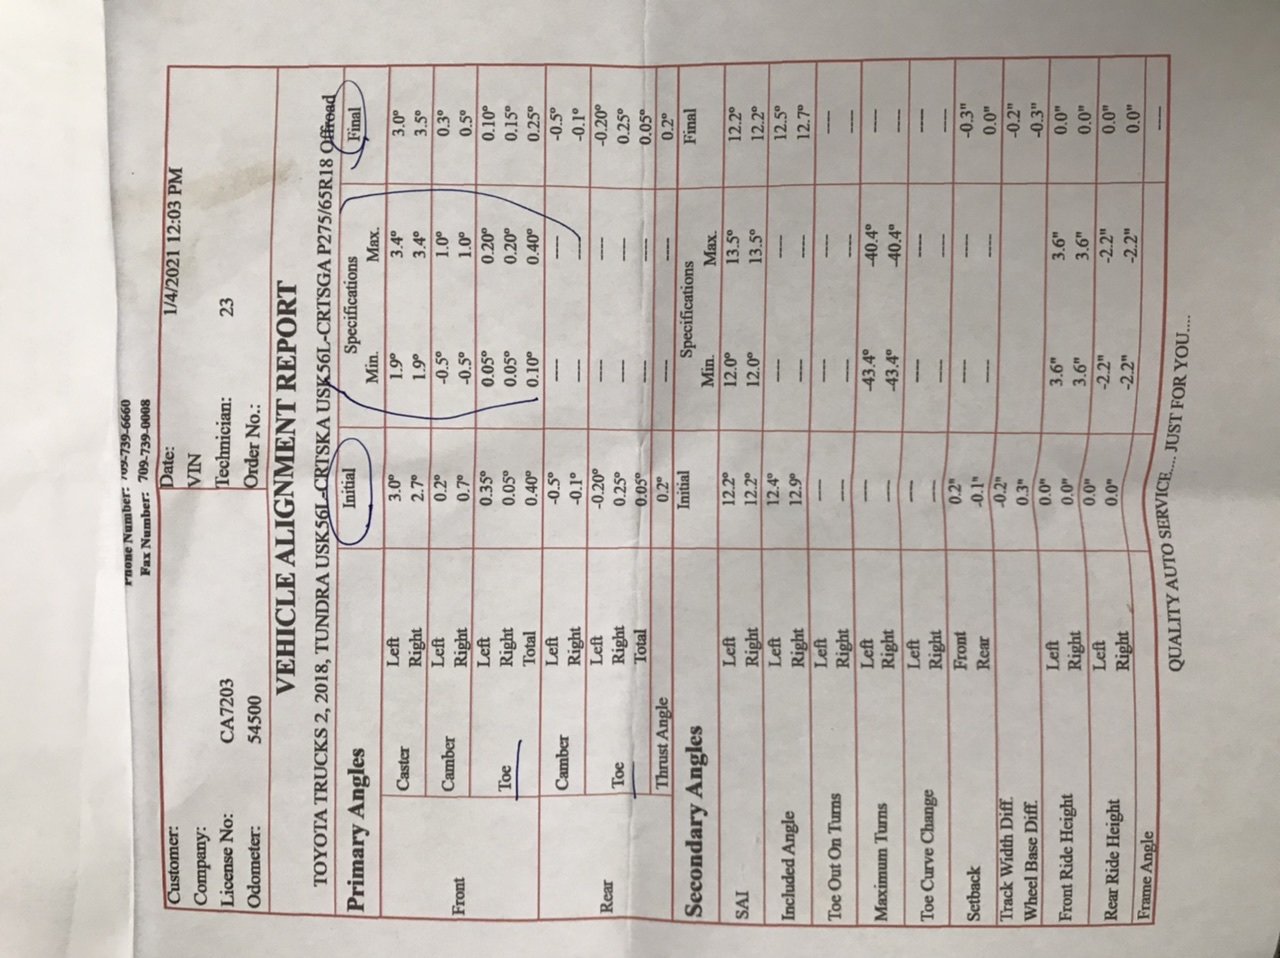 Phone Number: 709-739-6660
Fax Number: 709-739-0008
Customer: Date: 1/4/2021 12:03 PM
Company: VIN
License No: CA7203 Technician: 23
Odometer: 54500 Order No.:
VEHICLE ALIGNMENT REPORT
TOYOTA TRUCKS 2, 2018, TUNDRA USK56L-CRTSKA USK56L-CRTSGA P275/65R18 Offroad
Primary Angles Initial Specifications Final
Min. Max.
Front Caster Left 3.0° 1.9° 3.4° 3.0°
Right 2.7° 1.9° 3.4° 3.5°
Camber Left 0.2° -0.5° 1.0° 0.3°
Right 0.7° -0.5° 1.0° 0.5°
Toe Left 0.35° 0.05° 0.20° 0.10°
Right 0.05° 0.05° 0.20° 0.15°
Total 0.40° 0.10° 0.40° 0.25°
Rear Camber Left -0.5° ---- ---- -0.5°
Right -0.1° ---- ---- -0.1°
Toe Left -0.20° ---- ---- -0.20°
Right 0.25° ---- ---- 0.25°
Total 0.05° ---- ---- 0.05°
Thrust Angle 0.2° ---- ---- 0.2°
Secondary Angles Initial Specifications Final
Min. Max.
SAI Left 12.2° 12.0° 13.5° 12.2°
Right 12.2° 12.0° 13.5° 12.2°
Included Angle Left 12.4° ---- ---- 12.5°
Right 12.9° ---- ---- 12.7°
Toe Out On Turns Left ---- ---- ---- ----
Right ---- ---- ---- ----
Maximum Turns Left ---- -43.4° -40.4° ----
Right ---- -43.4° -40.4° ----
Toe Curve Change Left ---- ---- ---- ----
Right ---- ---- ---- ----
Setback Front 0.2" ---- ---- -0.3"
Rear -0.1" ---- ---- 0.0"
Track Width Diff. -0.2" -0.2"
Wheel Base Diff. 0.3" -0.3"
Front Ride Height Left 0.0" 3.6" 3.6" 0.0"
Right 0.0" 3.6" 3.6" 0.0"
Rear Ride Height Left 0.0" -2.2" -2.2" 0.0"
Right 0.0" -2.2" -2.2" 0.0"
Frame Angle ----
QUALITY AUTO SERVICE.... JUST FOR YOU....